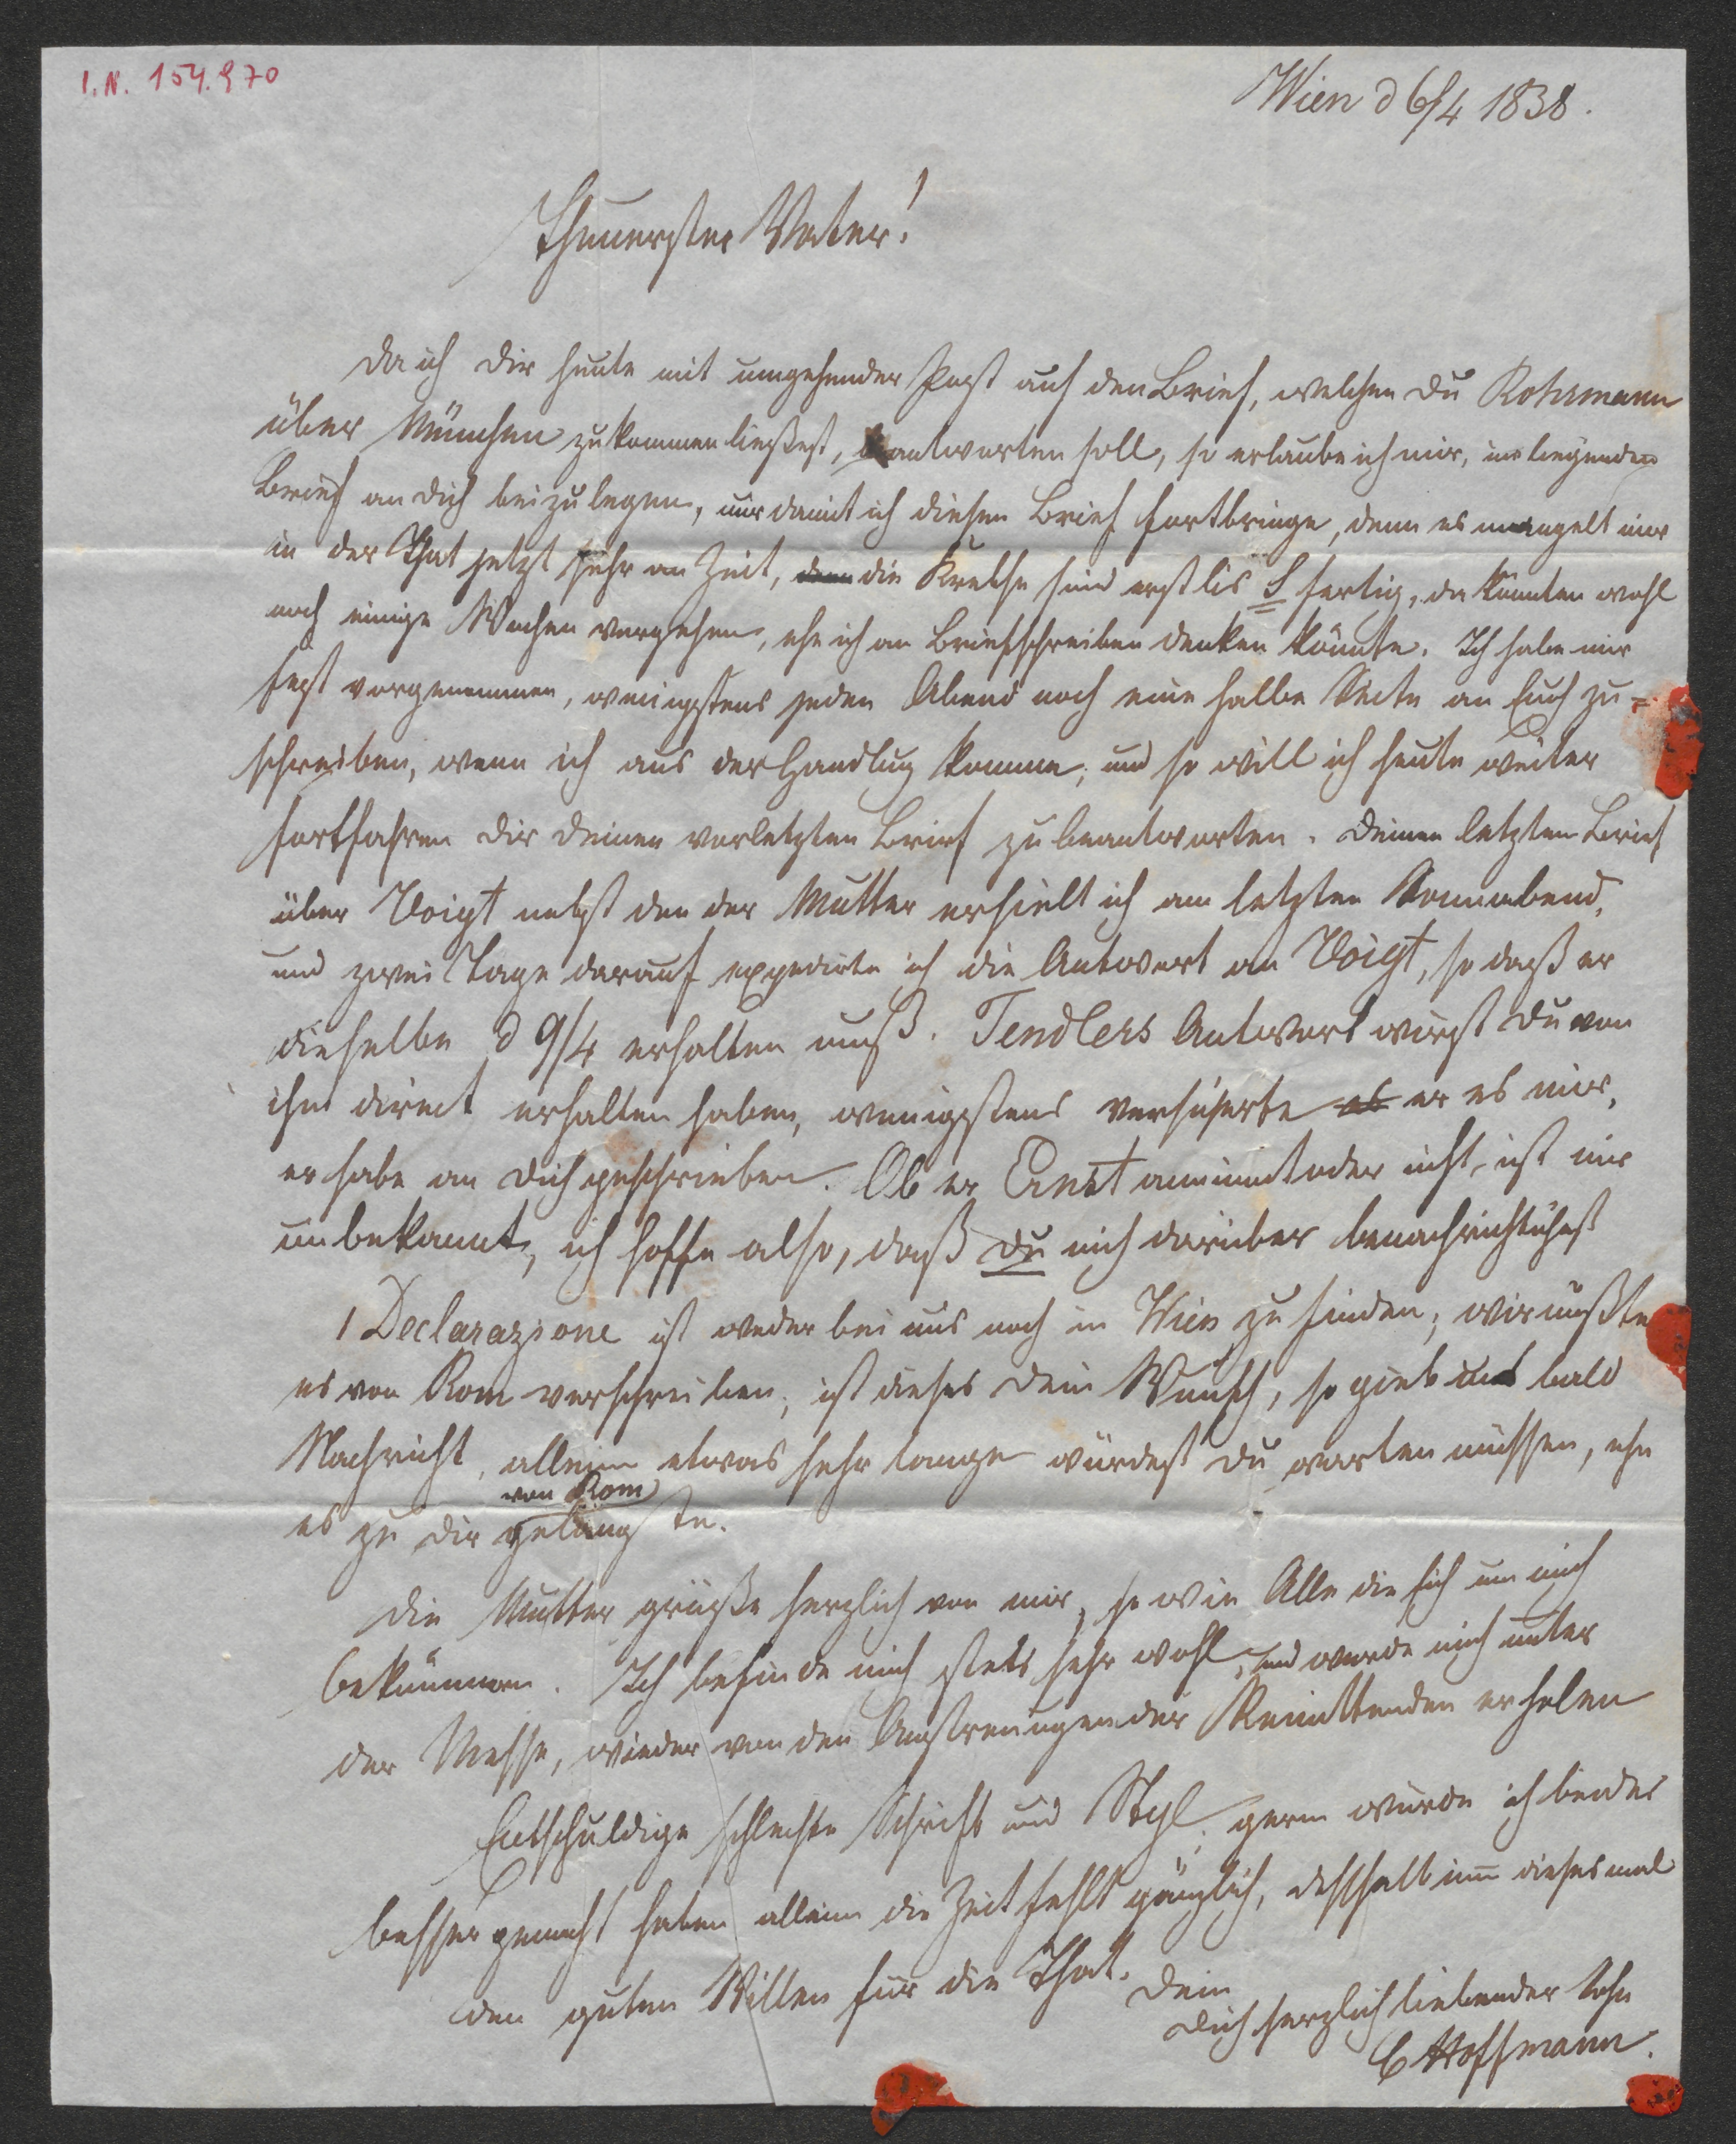 I.N. 154.970
Wien d 6/4 1838.
Theuerster Vater!
Da ich Dir heute mit umgehender Post auf den Brief, welchen Du Rohrmann
über München zukommen ließest, antworten soll, so erlaube ich mir, inliegenden
Brief an Dich beizulegen, nur damit ich diesen Brief fortbringe, denn es mangelt mir
in der That jetzt sehr an Zeit, denn die Krebse sind erst bis S fertig, da könnten wohl
noch einige Wochen vergehen, ehe ich an Briefschreiben denken könnte. Ich habe mir
fest vorgenommen, wenigstens jeden Abend noch eine halbe Seite an Euch zu=
schreiben, wenn ich aus der Handlug komme; und so will ich heute weiter
fortfahren Dir Deinen vorletzten Brief zu beantworten. Deinen letzten Brief
über Voigt nebst den der Mutter erhielt ich am letzten Sonnabend,
und zwei Tage darauf expedirte ich die Antwort an Voigt, so daß er
dieselbe d 9/4 erhalten muß. Tendlers Antwort wirst Du von
ihm direct erhalten haben, wenigstens versicherte es er es mir,
er habe an Dich geschrieben. Ob er Ernst annimmt oder nicht, ist mir
unbekannt, ich hoffe also, daß Du mich darüber benachrichtichest
1 Declarazione ist weder bei uns noch in Wien zu finden; wir mußten
es von Rom verschreiben; ist dieses Dein Wunsch, so gieb uns bald
Nachricht, allein etwas sehr lange würdest Du warten müssen, ehe
von Rom
es zu Dir gelangte.
Die Mutter grüße herzlich von mir, so wie Alle die sich um mich
bekümmern. Ich befinde mich stets sehr wohl, und werde mich unter
der Messe, wieder von den Anstrengungen der Remittenden erholen
Entschuldige schlechte Schrift und Styl; gern würde ich beides
besser gemacht haben allein die Zeit fehlt gänzlich, desshalb nim̅ diesesmal
den guten Willen für die That.
Dein
Dich herzlich liebender Sohn
C Hoffmann.